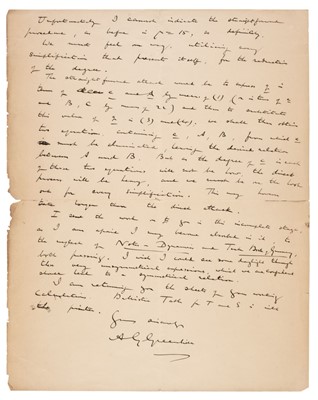 Unfortunately I cannot indicate the straightforward
procedure, as before in p.u. 15, so definitely.
We must feel our way, utilising every
simplification that presents itself, for the reduction
of the degree.
The straightforward attack must be to express
in terms of and by means of (1)
and B, by means of 22 and then to substitute
this value of in (3) and (4), we shall then obtain
two equations containing , A, B, from which
must be eliminated, leaving the desired relation
between A and B. But as the degree of in each
of these two equations will not be low, the direct
process will be heavy, and we must be on the look
out for every simplification. This may however
take longer than the direct attack.
I send the work as it goes in the incomplete stage,
as I am afraid I may become absorbed in it to
the neglect of Note on Dynamics and Tech
both pressing. I wish I could see some daylight through
this very unsymmetrical expression, which we
should better to a symmetrical relation.
I am returning you the sheets for your working
Calculation Ballistic Table for T and S is with
the printer.
Yours sincerely
A G Greenhill